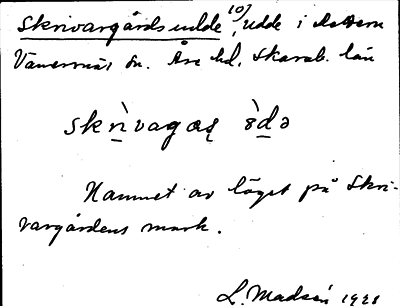 Skrivargårdsudde 10), udde i
Vänersnäs sn. Åse hd. Skarab. län
skrìvagaʂ òdə
Namnet av läget på Skri-
vargårdens mark.
L. Madsén 1928